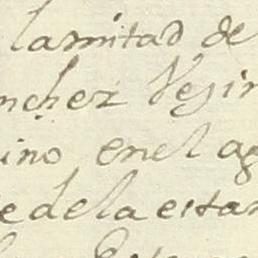 la mitad de
nchez Vesin
ino en el ag
e de la estan